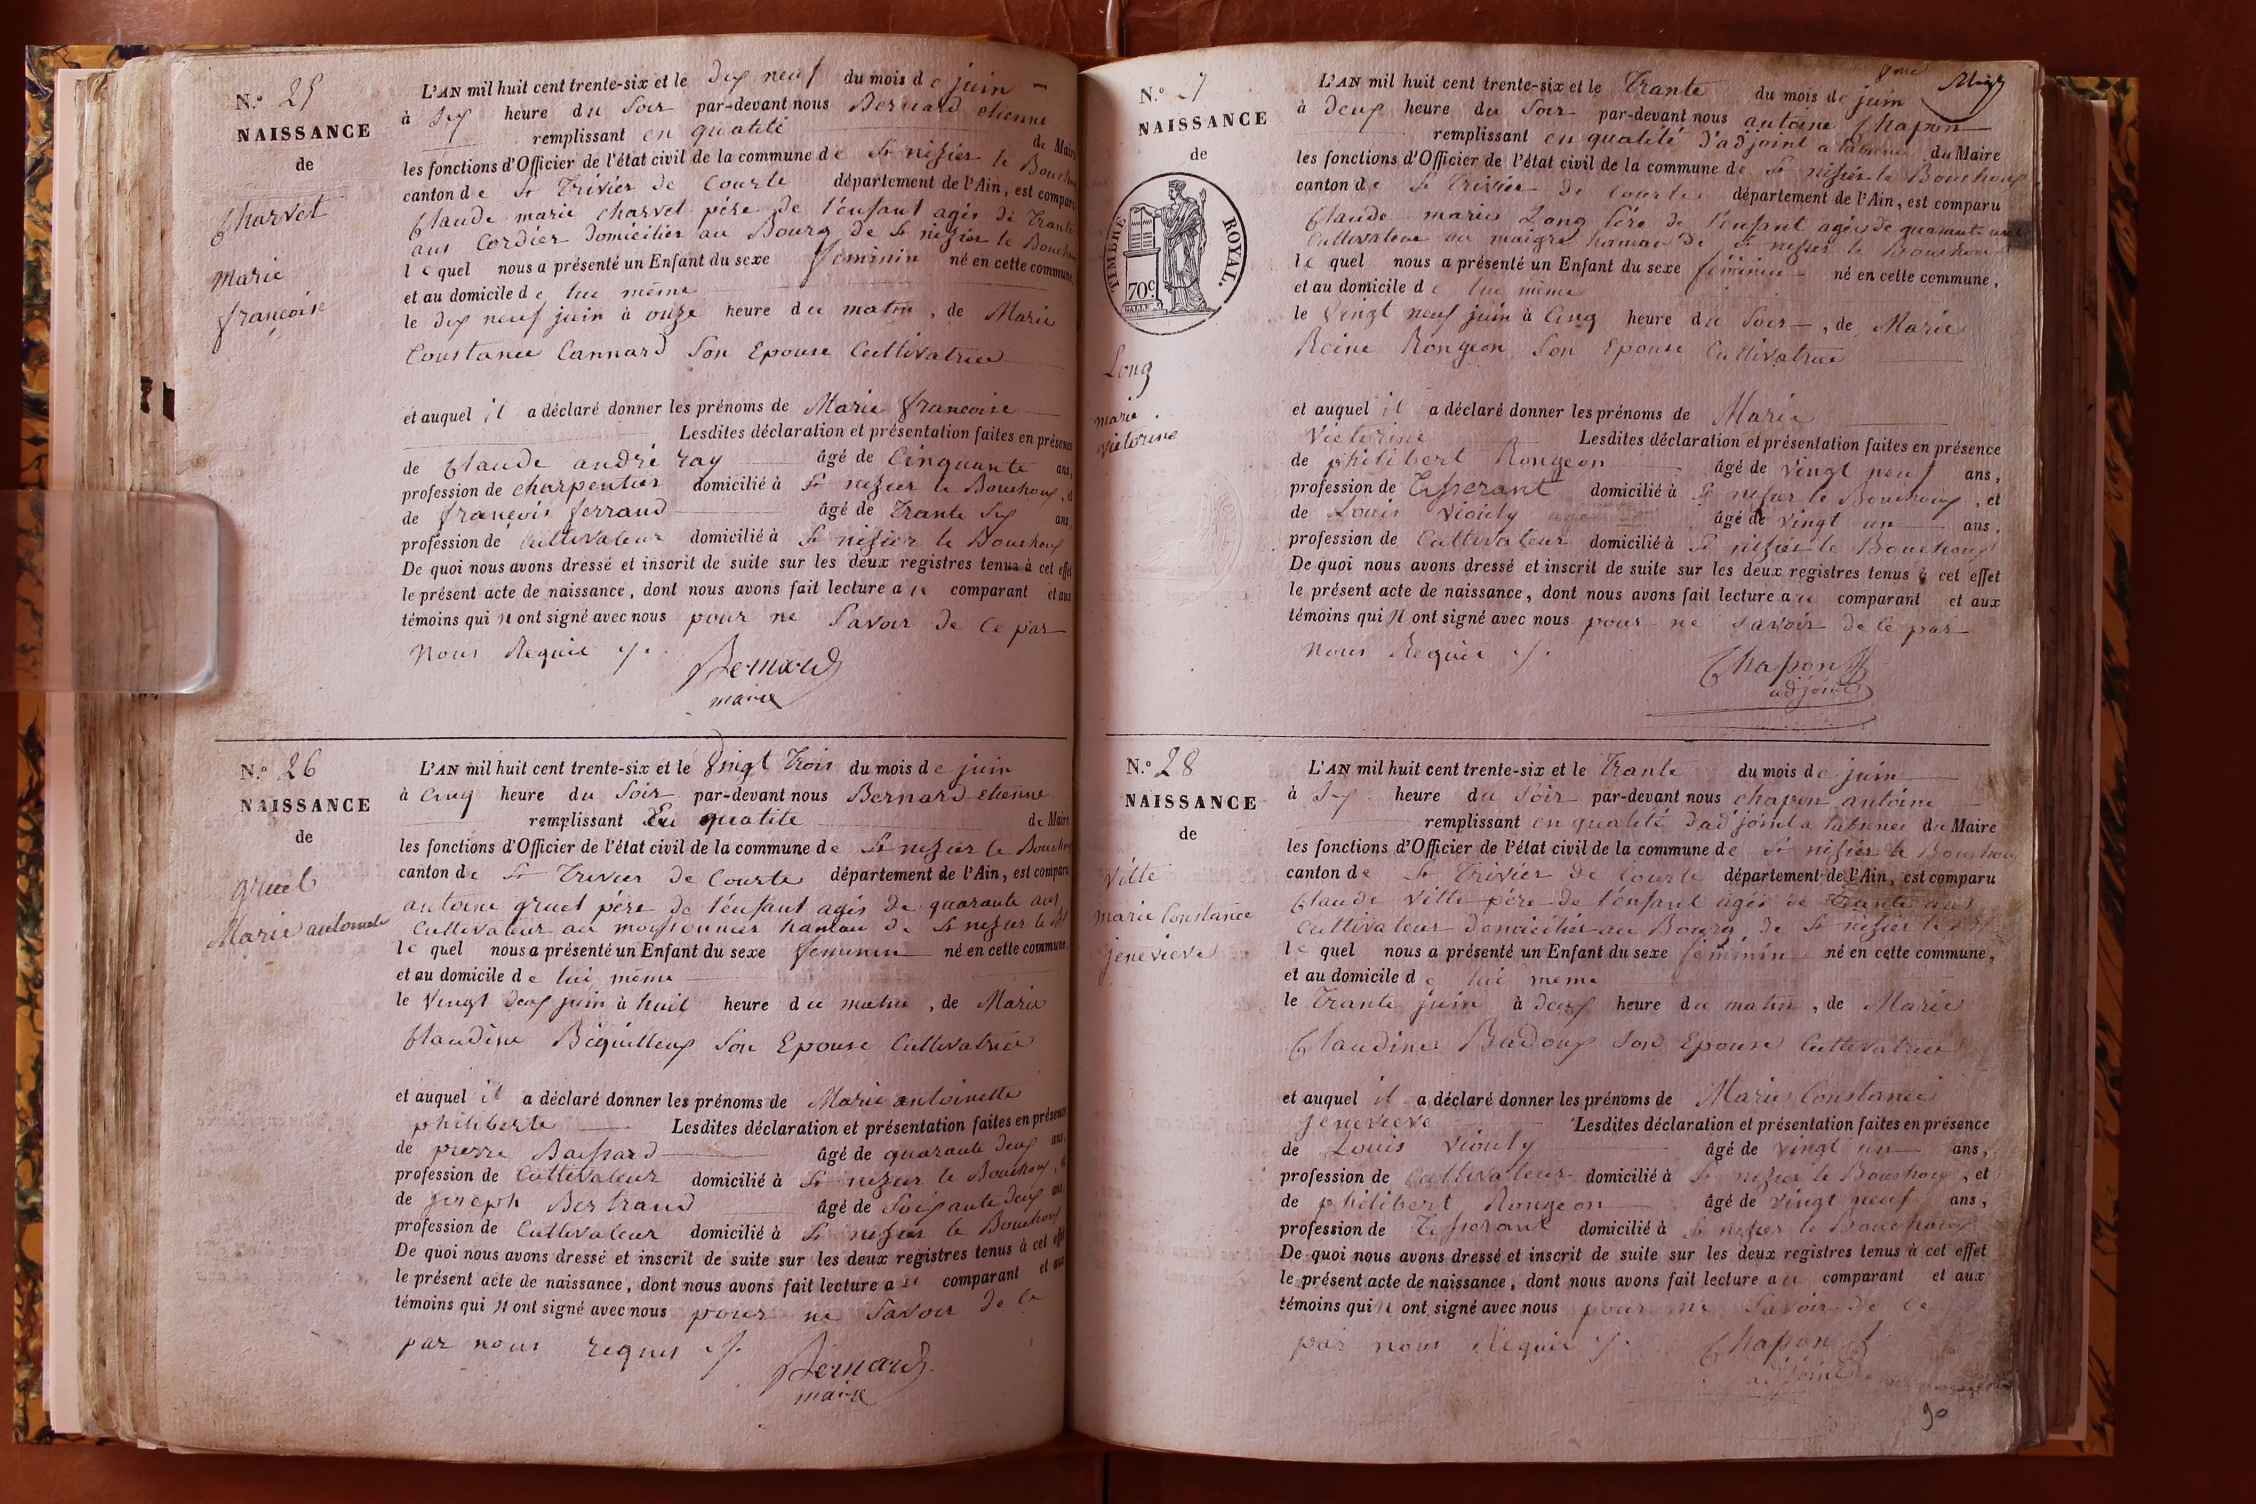 N.º 25
NAISSANCE
de
Charvet
Marie
françoise
L'AN mil huit cent trente-six et le dix neuf du mois de juin
à Six heure du Soir par-devant nous Bernard etienne
remplissant en qualité de Maire
les fonctions d'Officier de l'état civil de la commune de St nizier le Bouchoux
canton de St Trivier de Courte département de l'Ain, est comparu
Claude marie charvet père de l'enfant agés de Trante
ans Cordier domicilier au Bourg de St nizier le Bouchoux
le quel nous a présenté un Enfant du sexe feminin né en cette commune,
et au domicile de lui même
le dix neuf juin à onze heure du matin, de Marie
Constance Cannard Son Epouse Cultivatrice
et auquel il a déclaré donner les prénoms de Marie francoise
Lesdites déclaration et présentation faites en présence
de Claude andré ray âgé de Cinquante ans,
profession de charpentier domicilié à St nizier le Bouchoux, et
de françois ferrand âgé de Trante Six ans
profession de Cultivateur domicilié à St nizier le Bouchoux
De quoi nous avons dressé et inscrit de suite sur les deux registres tenus à cet effet
le présent acte de naissance, dont nous avons fait lecture au comparant et aux
témoins qui n ont signé avec nous pour ne Savoir de ce par
nous Requie
Bernard
maire
N.º 26
NAISSANCE
de
gruel
Marie antoinette
L'AN mil huit cent trente-six et le Vingt Trois du mois de juin
à Cinq heure du Soir par-devant nous Bernard etienne
remplissant En qualité de Maire
les fonctions d'Officier de l'état civil de la commune de St nizier le Bouchoux
canton de St Trivier de Courte département de l'Ain, est comparu
antoine gruel père de l'enfant agés de quarante ans
Cultivateur au moissonnier hamau de St nizier le Bx
le quel nous a présenté un Enfant du sexe feminin né en cette commune
et au domicile de lui même
le Vingt deux juin à huit heure du matin, de Marie
Claudine Biquilleux Son Epouse Cultivatrice
et auquel il a déclaré donner les prénoms de Marie antoinette
philiberte Lesdites déclaration et présentation faites en présence
de pierre Baissard âgé de quarante deux ans,
profession de Cultivateur domicilié à St nizier le Bouchoux, et
de joseph Bertrand âgé de Soixante deux ans
profession de Cultivateur domicilié à St nizier le Bouchoux
De quoi nous avons dressé et inscrit de suite sur les deux registres tenus à cet effet
le présent acte de naissance, dont nous avons fait lecture au comparant et aux
témoins qui n ont signé avec nous pour ne Savoir de Ce
par nous requis
Bernard
maire
N.º 7
NAISSANCE
de
TIMBRE ROYAL.
70c
Long
marie
victorine
L'AN mil huit cent trente-six et le Trante du mois de juin
à deux heure du Soir par-devant nous antoine Chapon
remplissant en qualité d'adjoint du Maire
les fonctions d'Officier de l'état civil de la commune de St nizier le Bouchoux
canton de St Trivier de Courte département de l'Ain, est comparu
Claude marie Long Père de l'enfant agés de quarante
Cultivateur au maigre hamau de St nizier le Bouchoux
le quel nous a présenté un Enfant du sexe féminin né en cette commune,
et au domicile de lui même
le Vingt neuf juin à Cinq heure du Soir, de Marie
Reine Rongeon Son Epouse Cultivatrice
et auquel il a déclaré donner les prénoms de Marie
Victorine Lesdites déclaration et présentation faites en présence
de philibert Rongeon âgé de Vingt neuf ans,
profession de Tisserant domicilié à St nizier le Bouchoux, et
de Louis Viouly âgé de vingt un ans,
profession de Cultivateur domicilié à St nizier le Bouchoux
De quoi nous avons dressé et inscrit de suite sur les deux registres tenus à cet effet
le présent acte de naissance, dont nous avons fait lecture au comparant et aux
témoins qui n ont signé avec nous pour ne savoir de ce par
nous Requie
Chapon
adjoint
N.º 28
NAISSANCE
de
Vitte
marie Constance
jenevieve
L'AN mil huit cent trente-six et le Trante du mois de juin
à Six heure du Soir par-devant nous chapon antoine
remplissant en qualité d'adjoint du Maire
les fonctions d'Officier de l'état civil de la commune de St nizier le Bouchoux
canton de St Trivier de Courte département de l'Ain, est comparu
Claude Vitte père de l'enfant agés de Trante ans
Cultivateur domicilier au Bourg de St nizier le Bx
le quel nous a présenté un Enfant du sexe féminin né en cette commune,
et au domicile de lui meme
le Trante juin à deux heure du matin, de Marie
Claudine Badoux Son Epouse Cultivatrice
et auquel il a déclaré donner les prénoms de Marie Constance
jenevieve Lesdites déclaration et présentation faites en présence
de Louis Viouly âgé de vingt un ans,
profession de Cultivateur domicilié à St nizier le Bouchoux, et
de philibert Rongeon âgé de vingt neuf ans,
profession de Tisserant domicilié à St nizier le Bouchoux
De quoi nous avons dressé et inscrit de suite sur les deux registres tenus à cet effet
le présent acte de naissance, dont nous avons fait lecture au comparant et aux
témoins qui n ont signé avec nous pour ne Savoir de ce
par nous Requie
Chapon
adjoint
90